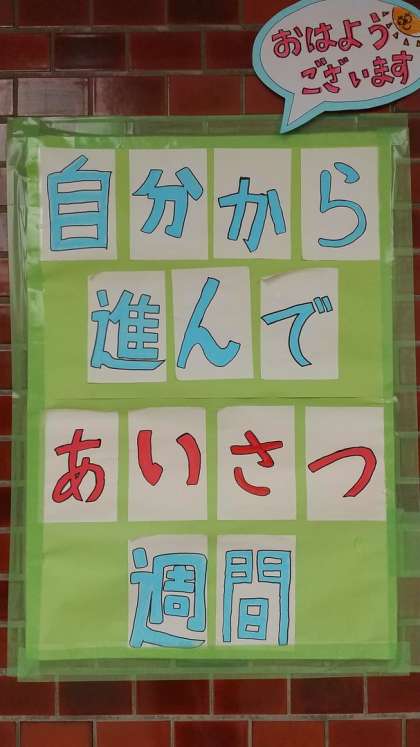 おはよう
ございます
自分から
進んで
あいさつ
週間